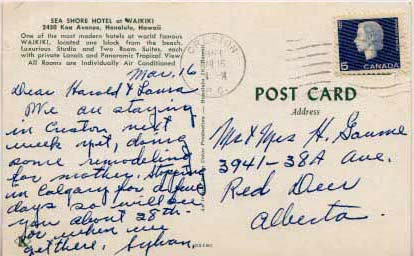 SEA SHORE HOTEL at WAIKIKI
2450 Koa Avenue, Honolulu, Hawaii
One of the most modern hotels at world famous
WAIKIKI, located one block from the beach.
Luxurious Studio and Two Room Suites, each
with private Lanais and Panoramic Tropical View
All Rooms are Individually Air Conditioned
Mar. 16
Dear Harold &
We are staying
in Creston next
week yet, doing
some remodeling
for mother. Stopping
in Calgary for a few
days so will see
you about 28th.
or when we
get there. Sylvan.
CRESTON
16
B.C.
5
CANADA
POST CARD
Address
Mr & Mrs H.
3941-38A Ave.
Red Deer
Alberta.
K